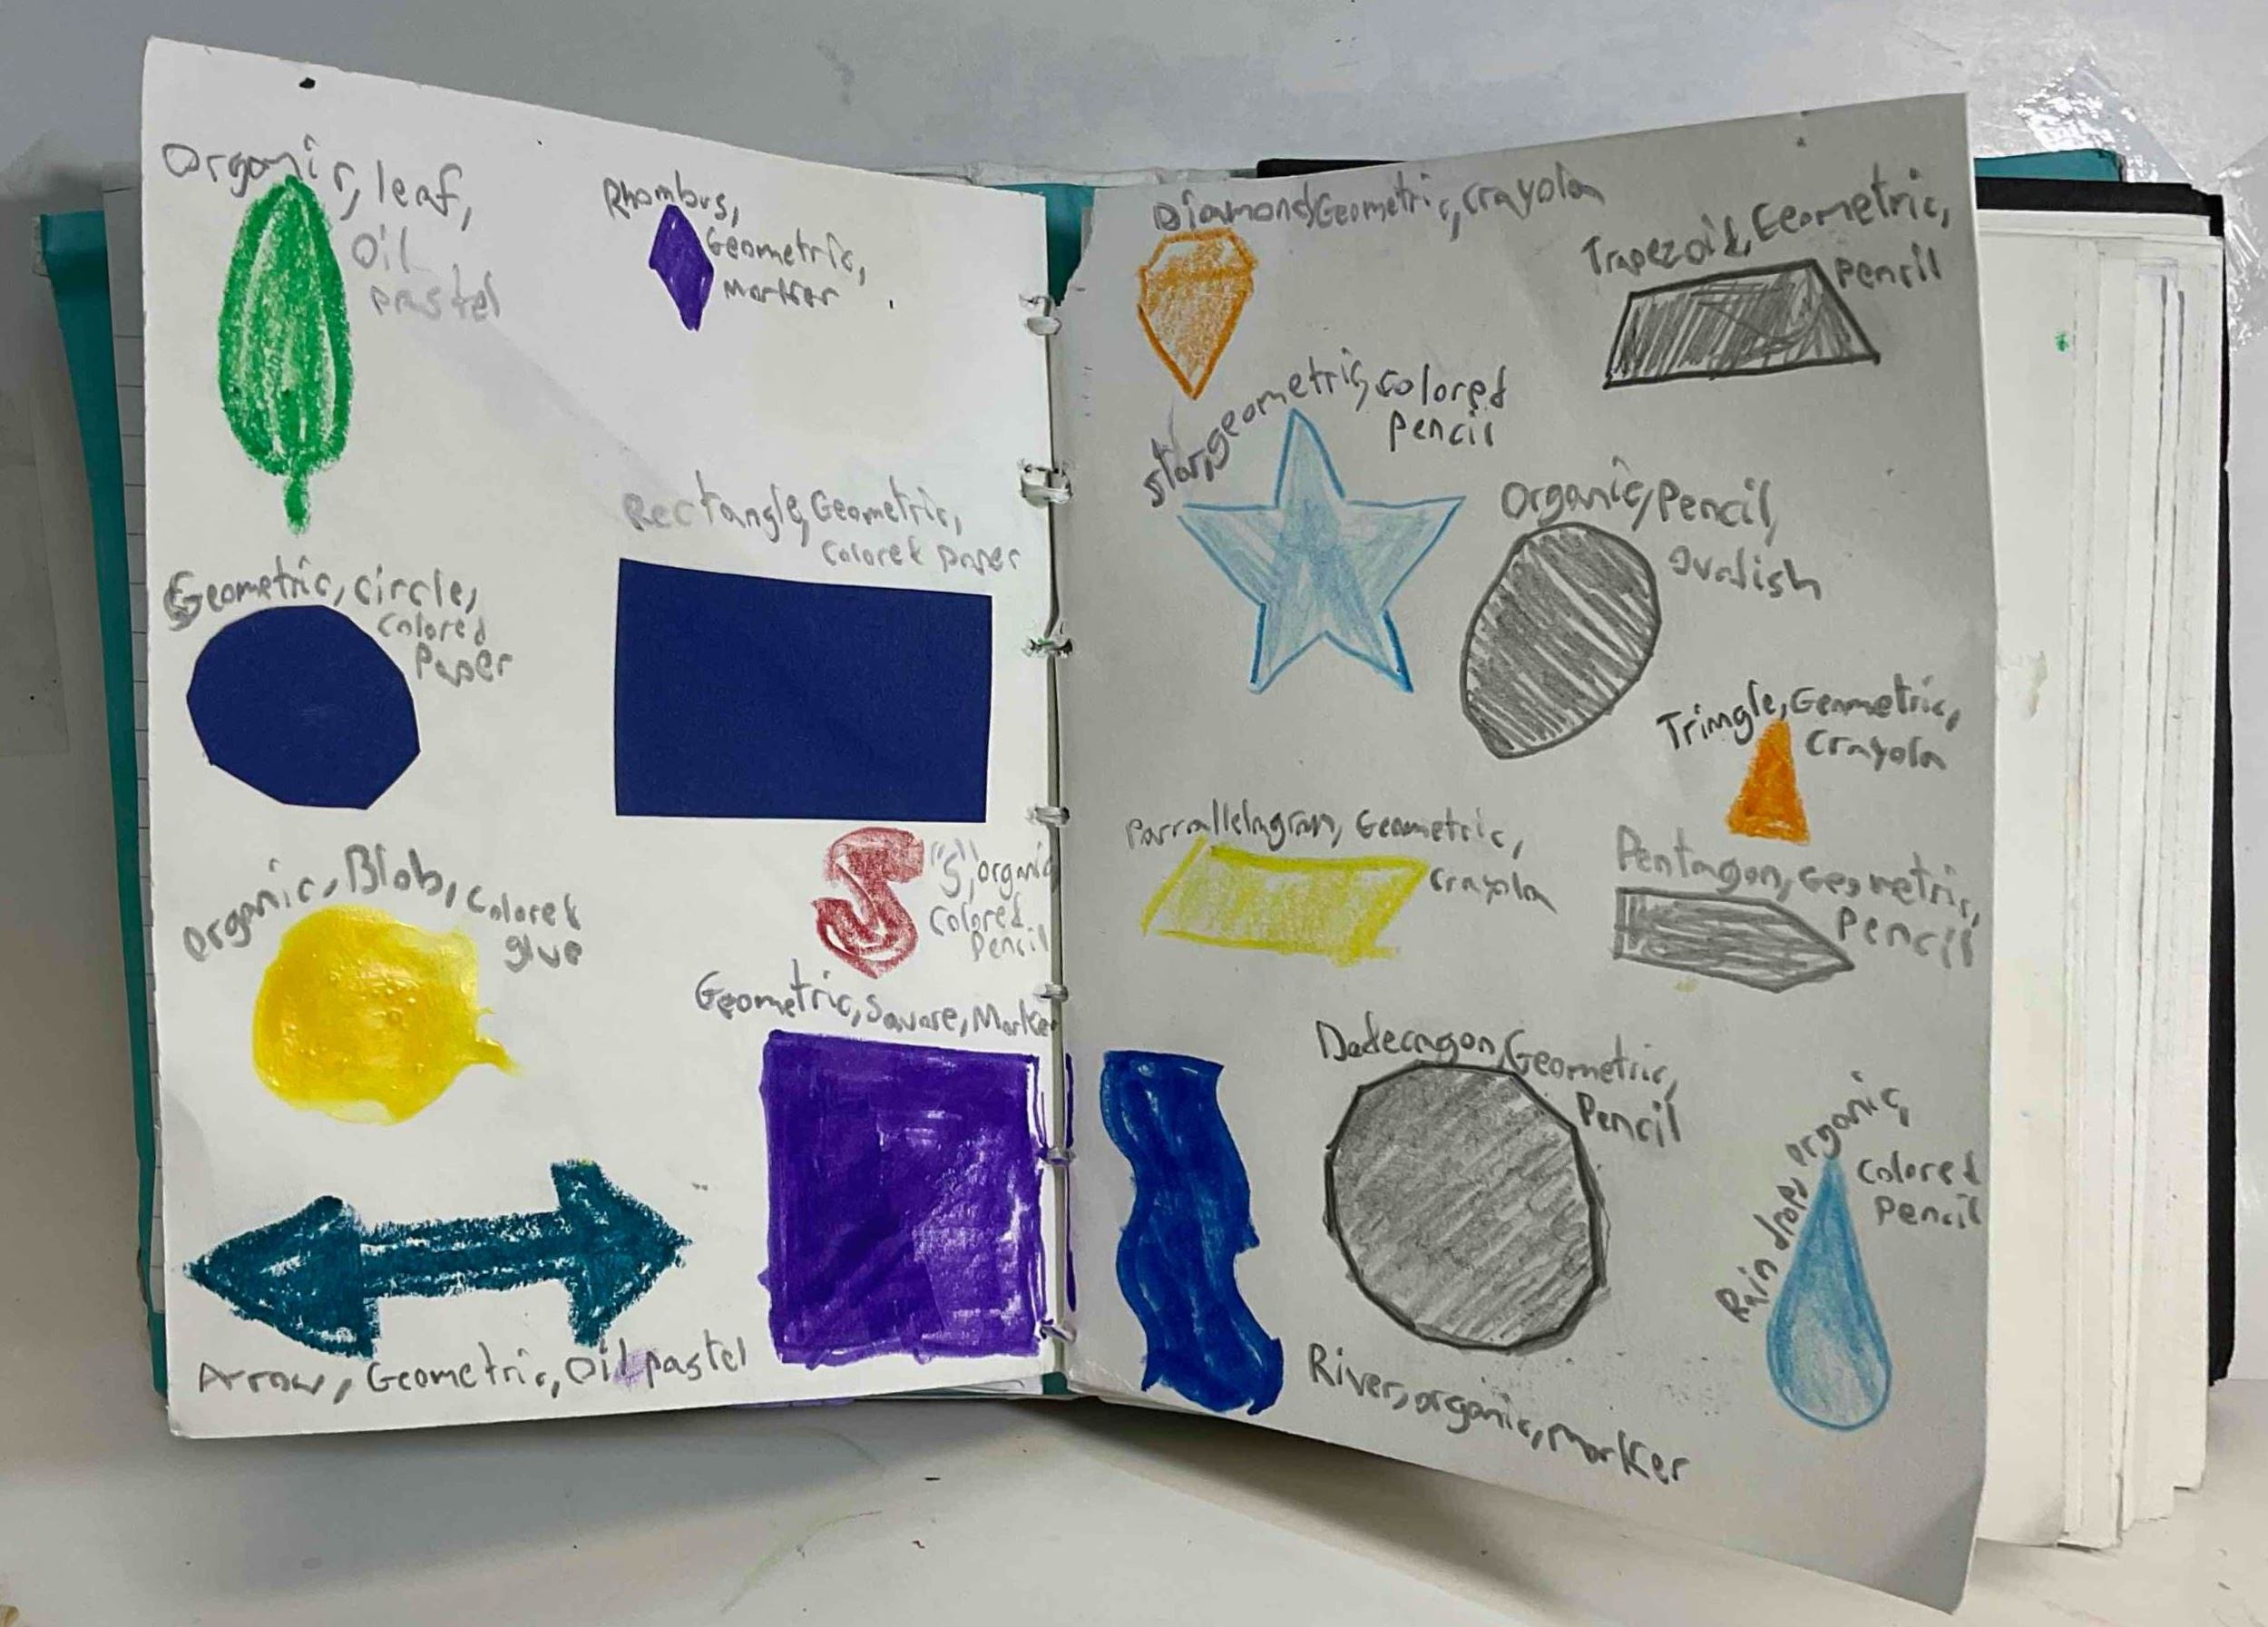 Organic, leaf,
Oil
pastel
Rhombus,
Geometric,
Marker
Geometric, circle,
Colored
Paper
Rectangle, Geometric,
Colored paper
Organic, Blob, Colored
glue
"S", organic
Colored
Pencil
Geometric, Square, Marker
Arrow, Geometric, Oil pastel
Diamond, Geometric, Crayola
Trapezoid, Geometric,
Pencil
Star, geometric, colored
Pencil
Organic, Pencil,
ovalish
Triangle, Geometric,
Crayola
Parrallelagram, Geometric,
Crayola
Pentagon, Geometric,
Pencil
Dodecagon, Geometric,
Pencil
Rain drop, organic,
Colored
Pencil
River, organic, marker